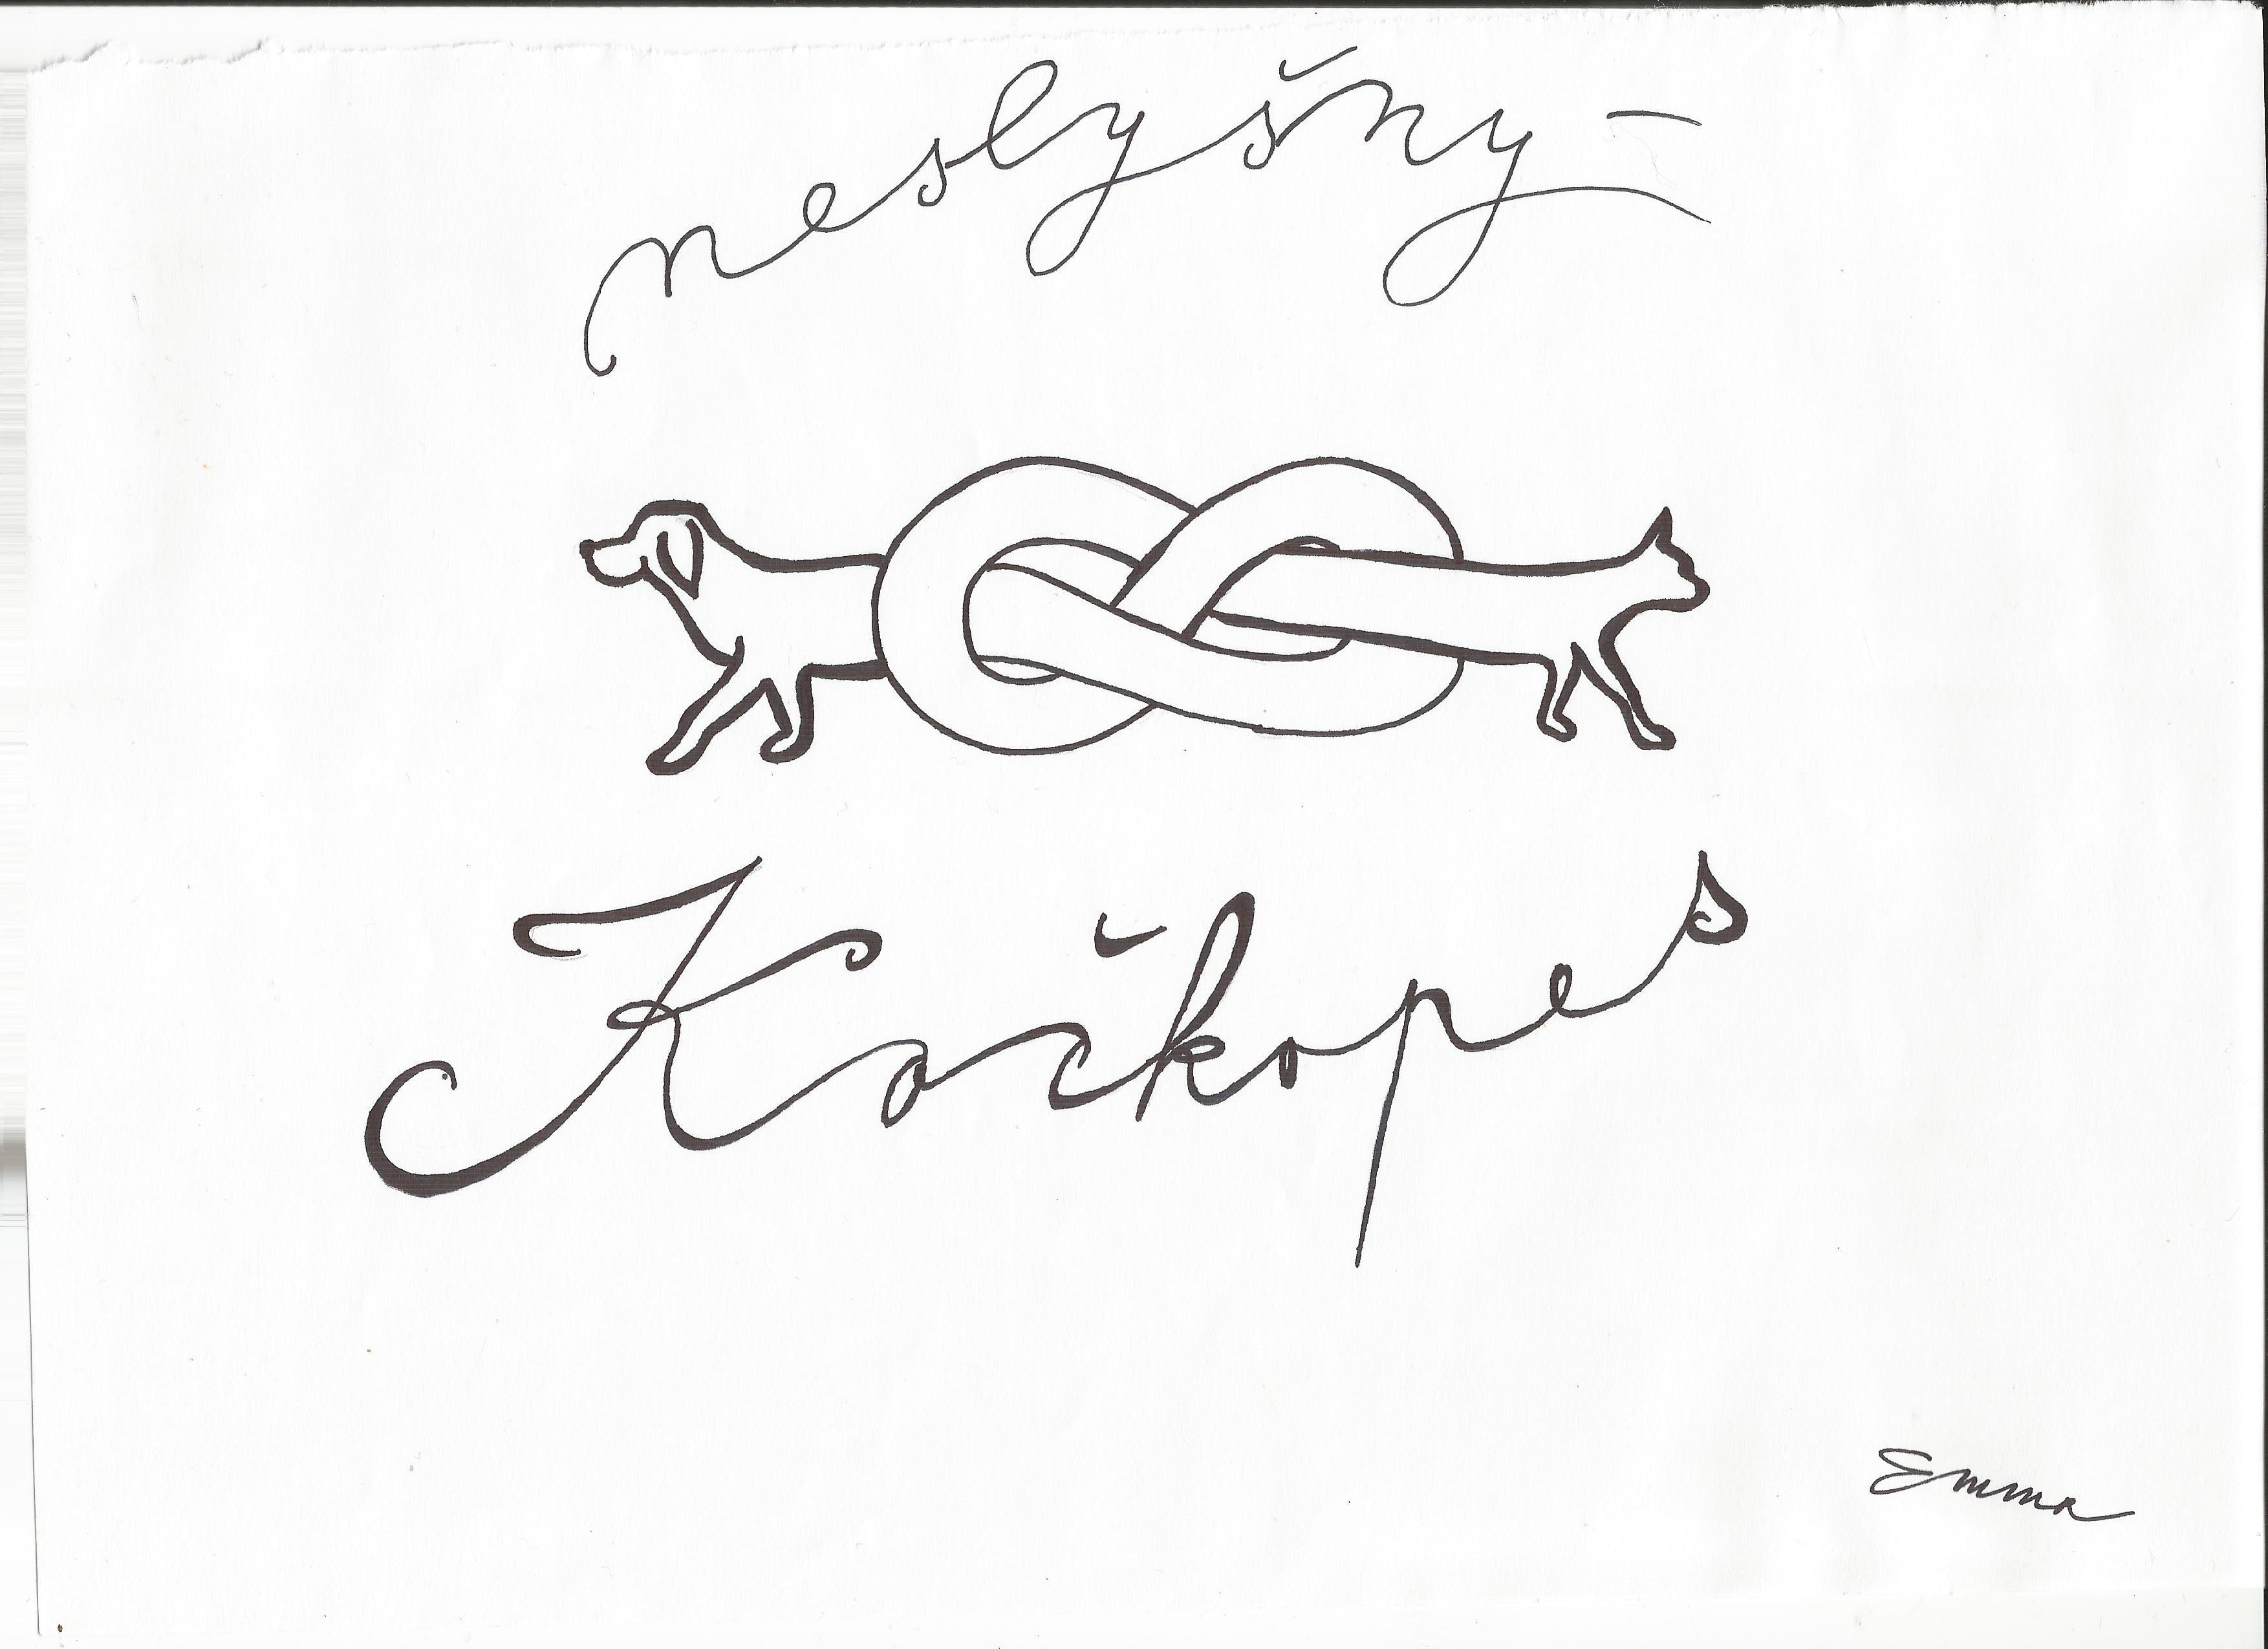 neslyšný
Kočkopes
Emma